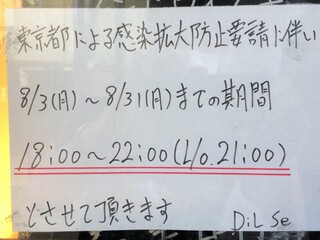 東京都による感染拡大防止要請に伴い
8/3(月)～8/31(月)までの期間
18:00～22:00(L/o.21:00)
とさせて頂きます
DiL Se